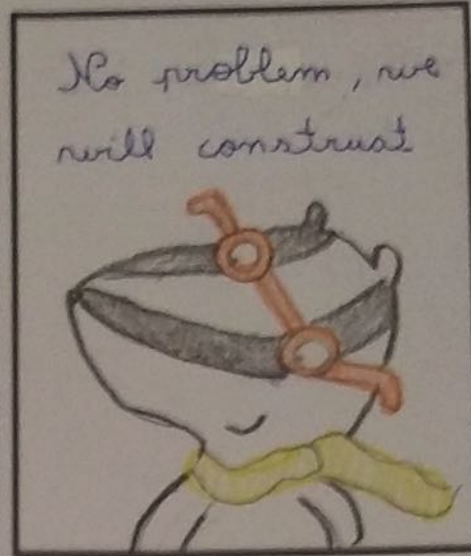 No problem, we
will construct